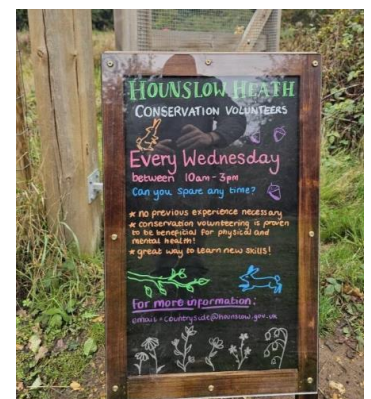 HOUNSLOW HEATH
CONSERVATION VOLUNTEERS
Every Wednesday
between 10am - 3pm
Can you spare any time?
* no previous experience necessary
* conservation volunteering is proven
to be beneficial for physical and
mental health!
* great way to learn new skills!
For more information:
email - countryside@hounslow.gov.uk